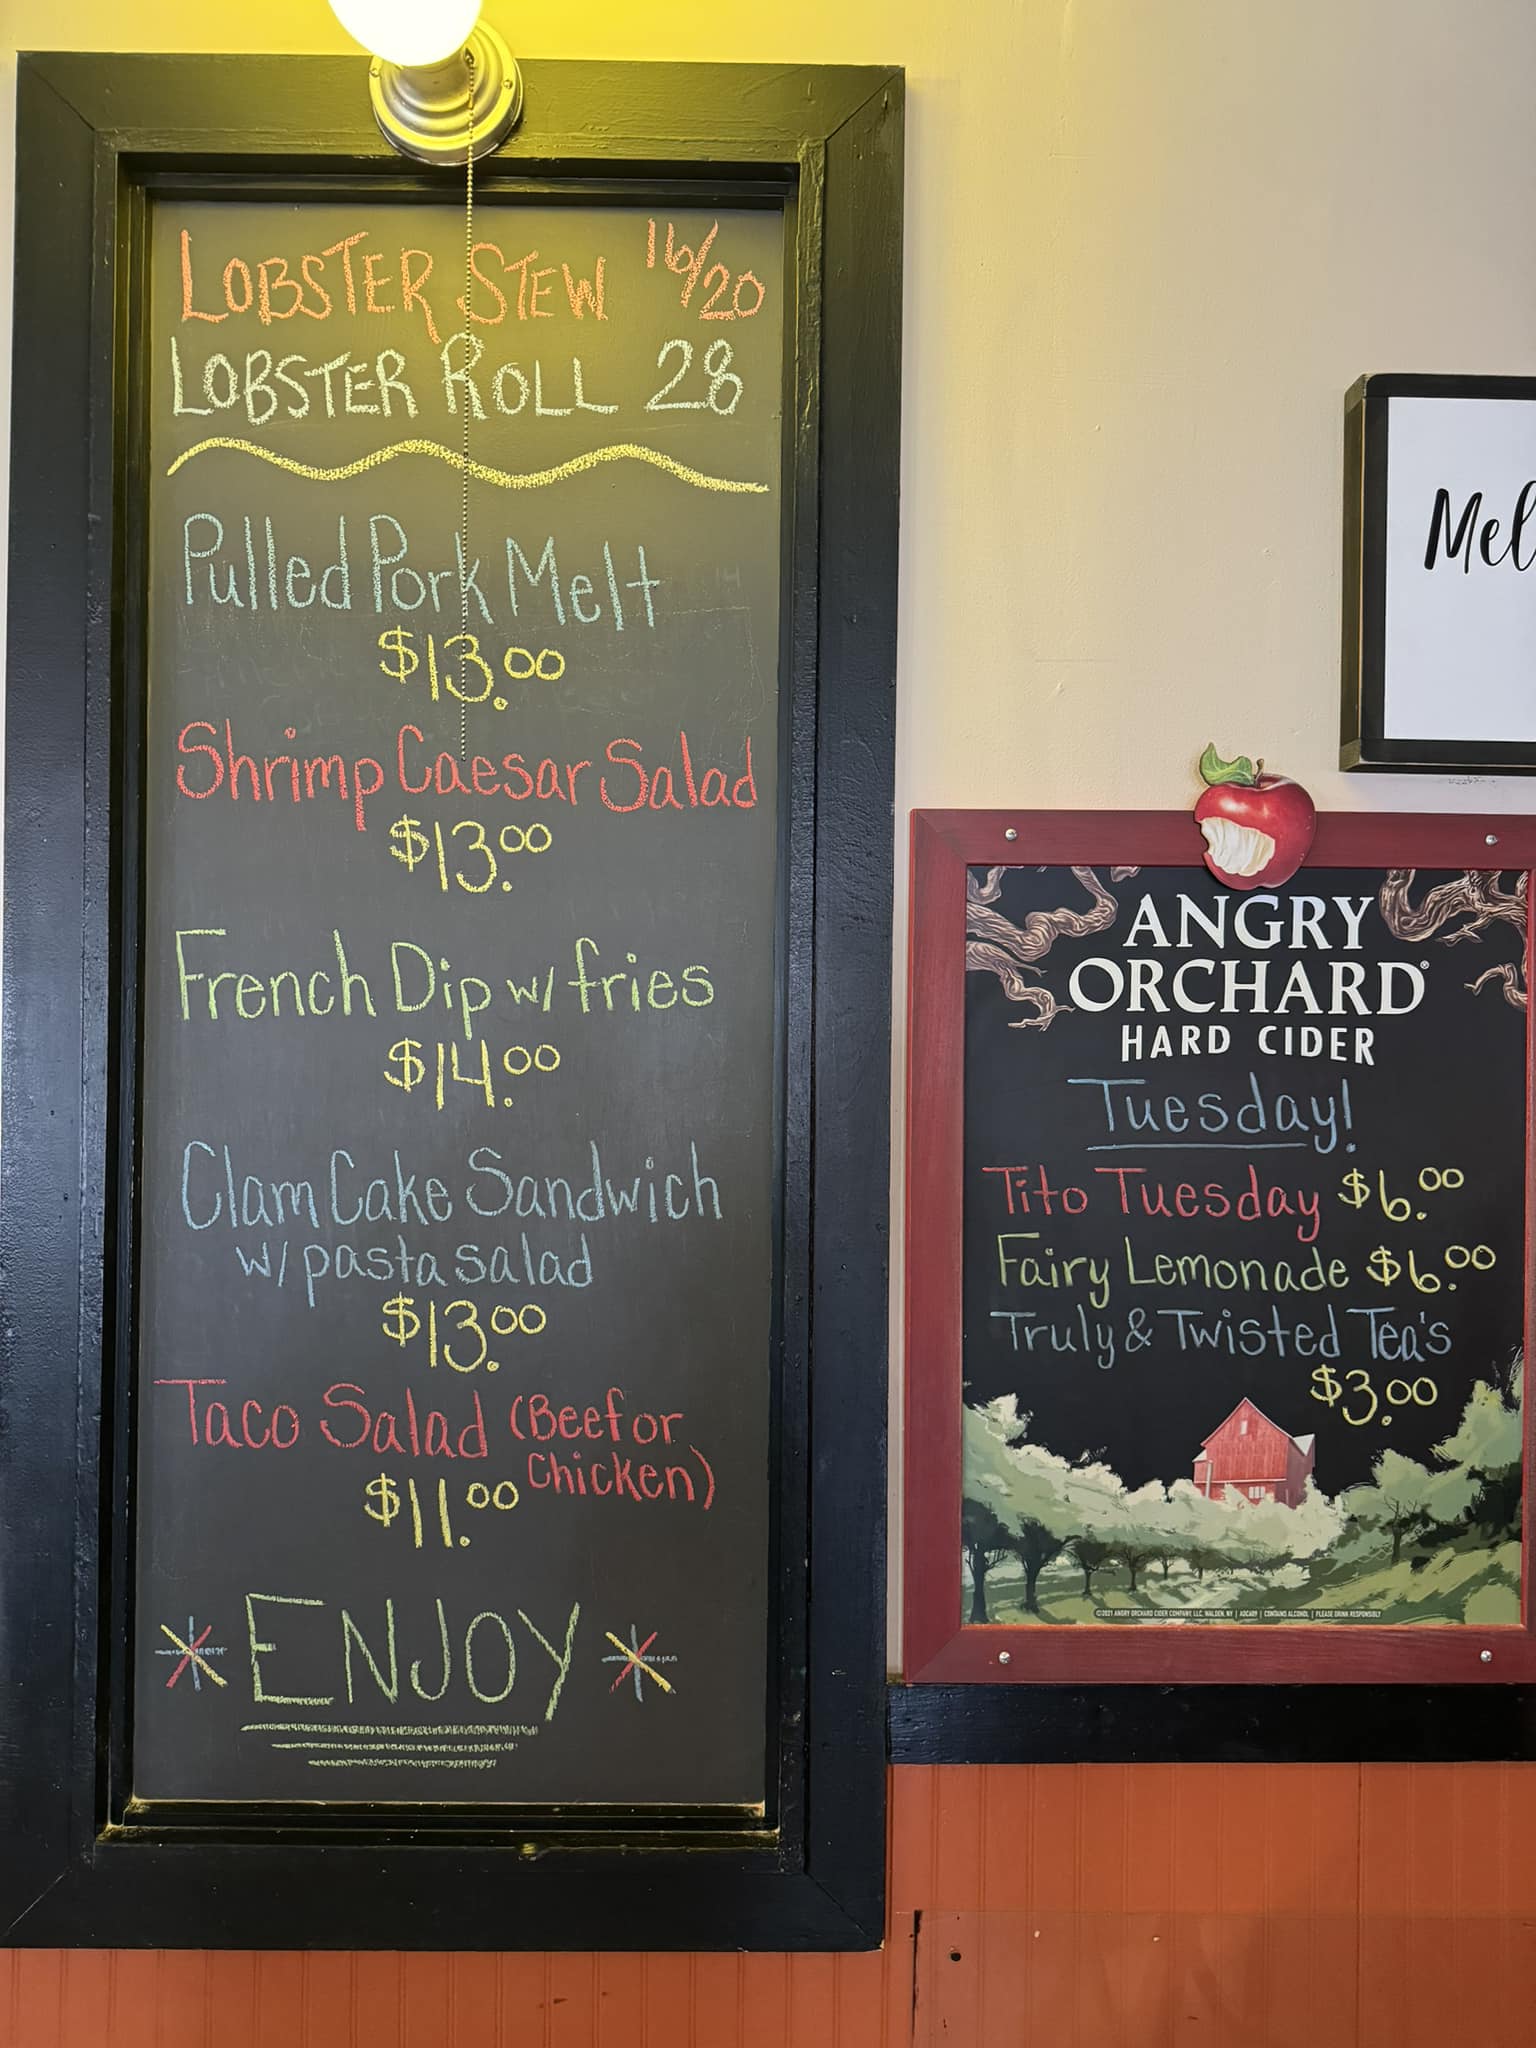 LOBSTER STEW 16/20
LOBSTER ROLL 28
Pulled Pork Melt
$13.00
Shrimp Caesar Salad
$13.00
French Dip w/ fries
$14.00
Clam Cake Sandwich
w/ pasta salad
$13.00
Taco Salad (Beef or
Chicken)
$11.00
ENJOY
Mel
ANGRY
ORCHARD®
HARD CIDER
Tuesday!
Tito Tuesday $6.00
Fairy Lemonade $6.00
Truly & Twisted Tea's
$3.00
©2021 ANGRY ORCHARD CIDER COMPANY, LLC, WALDEN, NY | AOCA09 | CONTAINS ALCOHOL | PLEASE DRINK RESPONSIBLY